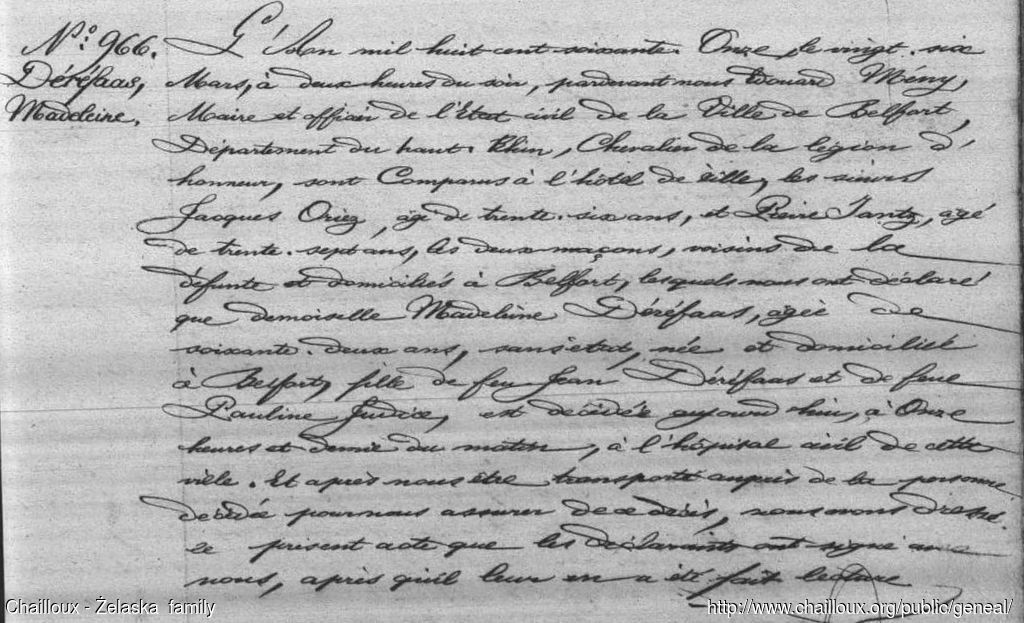 N.º 966.
Déréfaas,
Madeleine.
L'an mil huit cent soixante. Onze, le vingt. six
Mars, à deux heures du soir, pardevant nous Edouard Mény,
Maire et officier de l'Etat civil de la Ville de Belfort,
Département du haut. Rhin, Chevalier de la légion d'
honneur, sont Comparus à l'hôtel de ville, les sieurs
Jacques Oriez, âgé de trente. six ans, et Pierre Jantz, âgé
de trente. sept ans, les deux maçons, voisins de la
défunte et domiciliés à Belfort, lesquels nous ont déclaré
que demoiselle Madeleine Déréfaas, âgée de
soixante. deux ans, sans état, née et domiciliée
à Belfort, fille de feu Jean Déréfaas et de feue
Pauline, est décédée aujourd'hui, à Onze
heures et demie du matin, à l'hôpital civil de cette
ville. Et après nous être transporté auprès de la personne
décédée pour nous assurer de ce décès, nous avons dressé
le présent acte que les déclarants ont signé avec
nous, après qu'il leur en a été fait lecture
Chailloux - Żelaska family
http://www.chailloux.org/public/geneal/